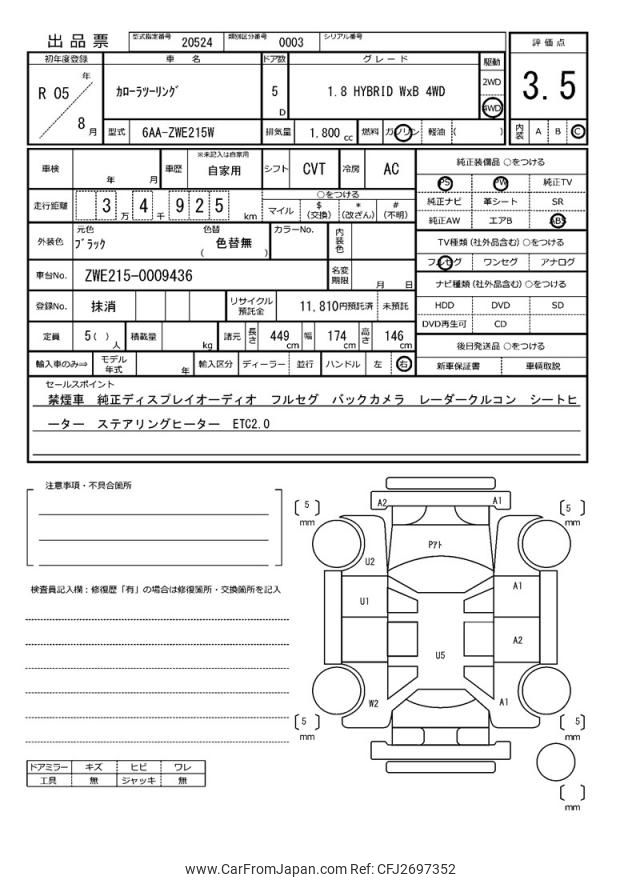 出品票 型式指定番号 20524 類別区分番号 0003 シリアル番号
評価点
3.5
内装 A B C
初年度登録 車名 ドア数 グレード 駆動
R 05 年 8 月
カローラツーリング 5 D 1.8 HYBRID WxB 4WD
2WD
4WD
型式 6AA-ZWE215W 排気量 1.800 cc 燃料 ガソリン 軽油 ( )
車検 年 月 車歴 ※未記入は自家用 自家用 シフト CVT 冷房 AC
走行距離 3 万 4 千 9 2 5 km
○をつける
マイル $ (交換) * (改ざん) # (不明)
外装色 元色 ブラック 色替 ( 色替無 ) カラーNo. 内装色
車台No. ZWE215-0009436 名変期限 月 日
登録No. 抹消 リサイクル預託金 11,810円預託済 未預託
定員 5( ) 人 積載量 kg 諸元 長さ 449 cm 幅 174 cm 高さ 146 cm
輸入車のみ⇒ モデル年式 年 輸入区分 ディーラー 並行 ハンドル 左 右
純正装備品 ○をつける
PS PW 純正TV
純正ナビ 革シート SR
純正AW エアB ABS
TV種類 (社外品含む) ○をつける
フルセグ ワンセグ アナログ
ナビ種類 (社外品含む) ○をつける
HDD DVD SD
DVD再生可 CD
後日発送品 ○をつける
新車保証書 車輌取説
セールスポイント
禁煙車 純正ディスプレイオーディオ フルセグ バックカメラ レーダークルコン シートヒ
ーター ステアリングヒーター ETC2.0
注意事項・不具合箇所
検査員記入欄:修復歴「有」の場合は修復箇所・交換箇所を記入
ドアミラー キズ ヒビ ワレ
工具 無 ジャッキ 無
A2 A1
5 mm
5 mm
Pｱﾄ
U2
U1
A1
A2
U5
W2
A1
5 mm
5 mm
mm
www.CarFromJapan.com Ref: CFJ2697352